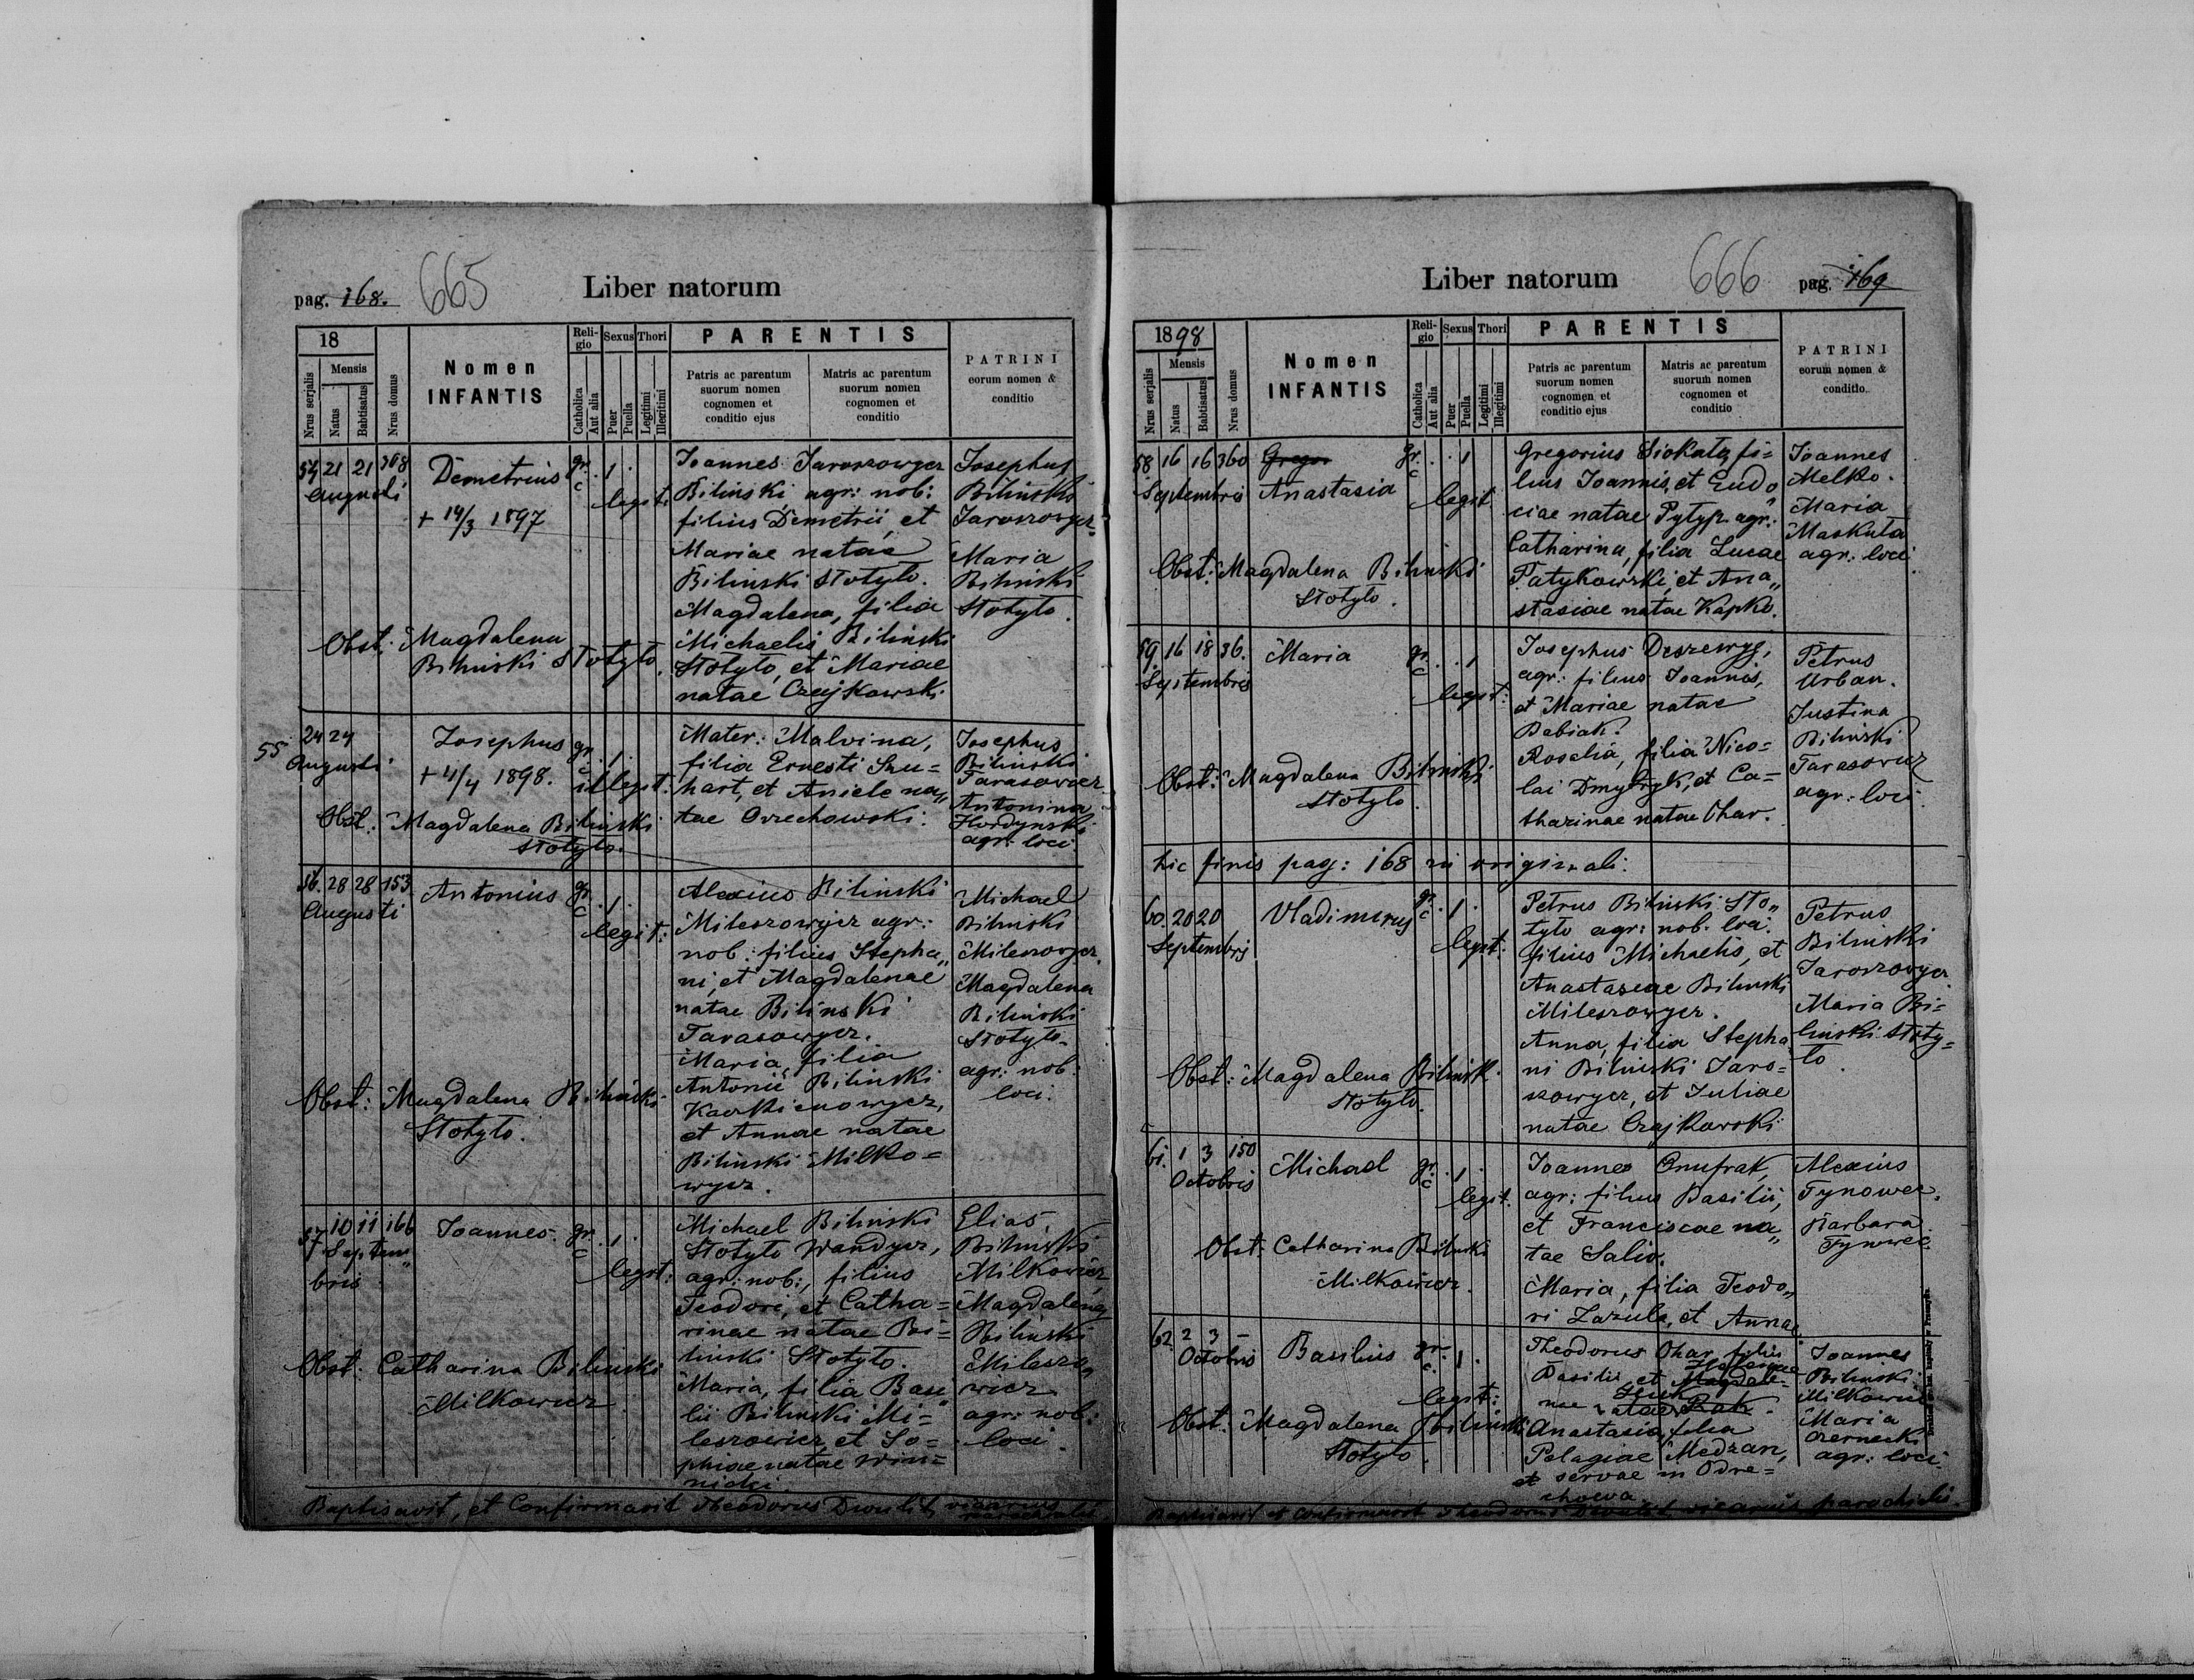 pag. 168. 665 Liber natorum
18
Mensis
Nrus serjalis
Natus
Babtisatus
Nrus domus
Nomen
INFANTIS
Religio
Catholica
Aut alia
Sexus
Puer
Puella
Thori
Legitimi
Illegitimi
PARENTIS
Patris ac parentum
suorum nomen
cognomen et
conditio ejus
Matris ac parentum
suorum nomen
cognomen et
conditio
PATRINI
eorum nomen &
conditio
54 21 21 308
Augusti
Demetrius
+ 14/3 1897
gr.
c
1
legit:
Joannes Jaroszowycz
Bilinski agr: nob:
filius Demetrii, et
Mariae natae
Bilinski Stotyło.
Magdalena, filia
Michaelis Bilinski
Stotyło, et Mariae
natae Czajkowski.
Josephus
Bilinski
Jaroszowycz
Maria
Bilinski
Stotyło.
Obst: Magdalena
Bilinski Stotyło.
55 24 24
Augusti
Josephus
+ 4/4 1898.
gr.
c
1
illegit:
Mater: Malvina,
filia Ernesti Szu=
hart, et Aniele na„
tae Orzechowski.
Josephus
Bilinski
Tarasowicz
Antonina
Hordynski
agr. loci
Obst: Magdalena Bilinski
Stotyło.
56. 28 28 153
Augusti
Antonius
gr.
c
1
legit:
Alexius Bilinski
Mileszowycz agr:
nob: filius Stepha„
ni, et Magdalenae
natae Bilinski
Tarasowycz.
Maria, filia
Antonii Bilinski
et Annae natae
Bilinski Milko=
wycz.
Michael
Bilinski
Mileszowycz.
Magdalena
Bilinski
Stotyło
agr: nob:
loci.
Obst: Magdalena Bilinski
Stotyło.
57 10 11 166
Septem„
bris
Joannes.
gr.
c
1
legit:
Michael Bilinski
Stotyło Wandycz,
agr: nob:, filius
Teodori, et Catha=
rinae natae Bi=
linski Stotyło.
Maria, filia Basi„
lii Bilinski Mi=
leszowicz, et So=
phiae natae Win=
nicki.
Elias
Bilinski
Milkowicz
Magdalena
Bilinski
Mileszo„
wicz
agr: nob:
loci.
Obst: Catharina Bilinski
Milkowicz.
Baptisavit, et Confirmavit Theodorus vicarius
parochialis
Liber natorum 666 pag. 169
1898
Mensis
Nrus serjalis
Natus
Babtisatus
Nrus domus
Nomen
INFANTIS
Religio
Catholica
Aut alia
Sexus
Puer
Puella
Thori
Legitimi
Illegitimi
PARENTIS
Patris ac parentum
suorum nomen
cognomen et
conditio ejus
Matris ac parentum
suorum nomen
cognomen et
conditio
PATRINI
eorum nomen &
conditio.
58 16 16 360
Septembris
Gregor
Anastasia
gr.
c
1
legit
Gregorius Siokało, fi=
lius Joannis, et Eudo„
ciae natae Pytyp. agr:
Catharina, filia Lucae
Patykowski, et Ana„
stasiae natae Kapko.
Joannes
Melko.
Maria
Maskuta
agr: loci.
Obst: Magdalena Bilinski
Stotyło.
59. 16 18 36.
Septembris
Maria
gr.
c
1
legit:
Josephus
agr: filius Joannis,
et Mariae natae
Babiak.
Rosalia, filia Nico=
lai Dmytryk, et Ca=
tharinae natae Ohar.
Petrus
Urban.
Justina
Bilinski
Tarasovicz
agr: loci.
Obst: Magdalena Bilinski
Stotyło.
hic finis pag: 168 in originali.
60. 20 20
Septembris
Vladimirus
gr.
c
1
legit:
Petrus Bilinski Sto„
tyło agr: nob. loci.
filius Michaelis, et
Anastasiae Bilinski
Mileszowycz.
Anna, filia Stepha
ni Bilinski Jaro=
szowycz, et Juliae
natae Czajkowski
Petrus
Bilinski
Jaroszowycz.
Maria Bi=
linski Stoty=
ło.
Obst: Magdalena Bilinsk.
Stotyło.
61. 1 3 150
Octobris
Michael
gr.
c
1
legit.
Joannes Onufrak,
agr: filius Basilii,
et Franciscae na„
tae Salio.
Maria, filia Teodo„
ri Zazula, et Annae.
Alexius
Tynowec.
Barbara
Tynowec.
Obst: Catharina Bilinski
Milkowicz.
62 2 3 –
Octobris
Basilius
gr.
c.
1
legit:
Theodorus Ohar, filius
Basilii, et Magdale=
nae natae Rak.
Anastasia, filia
Pelagiae Medzan,
et servae in Odre=
chowa.
Joannes
Bilinski
Milkowicz
Maria
Czernecki
agr: loci.
Obst: Magdalena Bilinski
Stotyło.
Baptisavit et Confirmavit Theodorus vicarius parochialis.